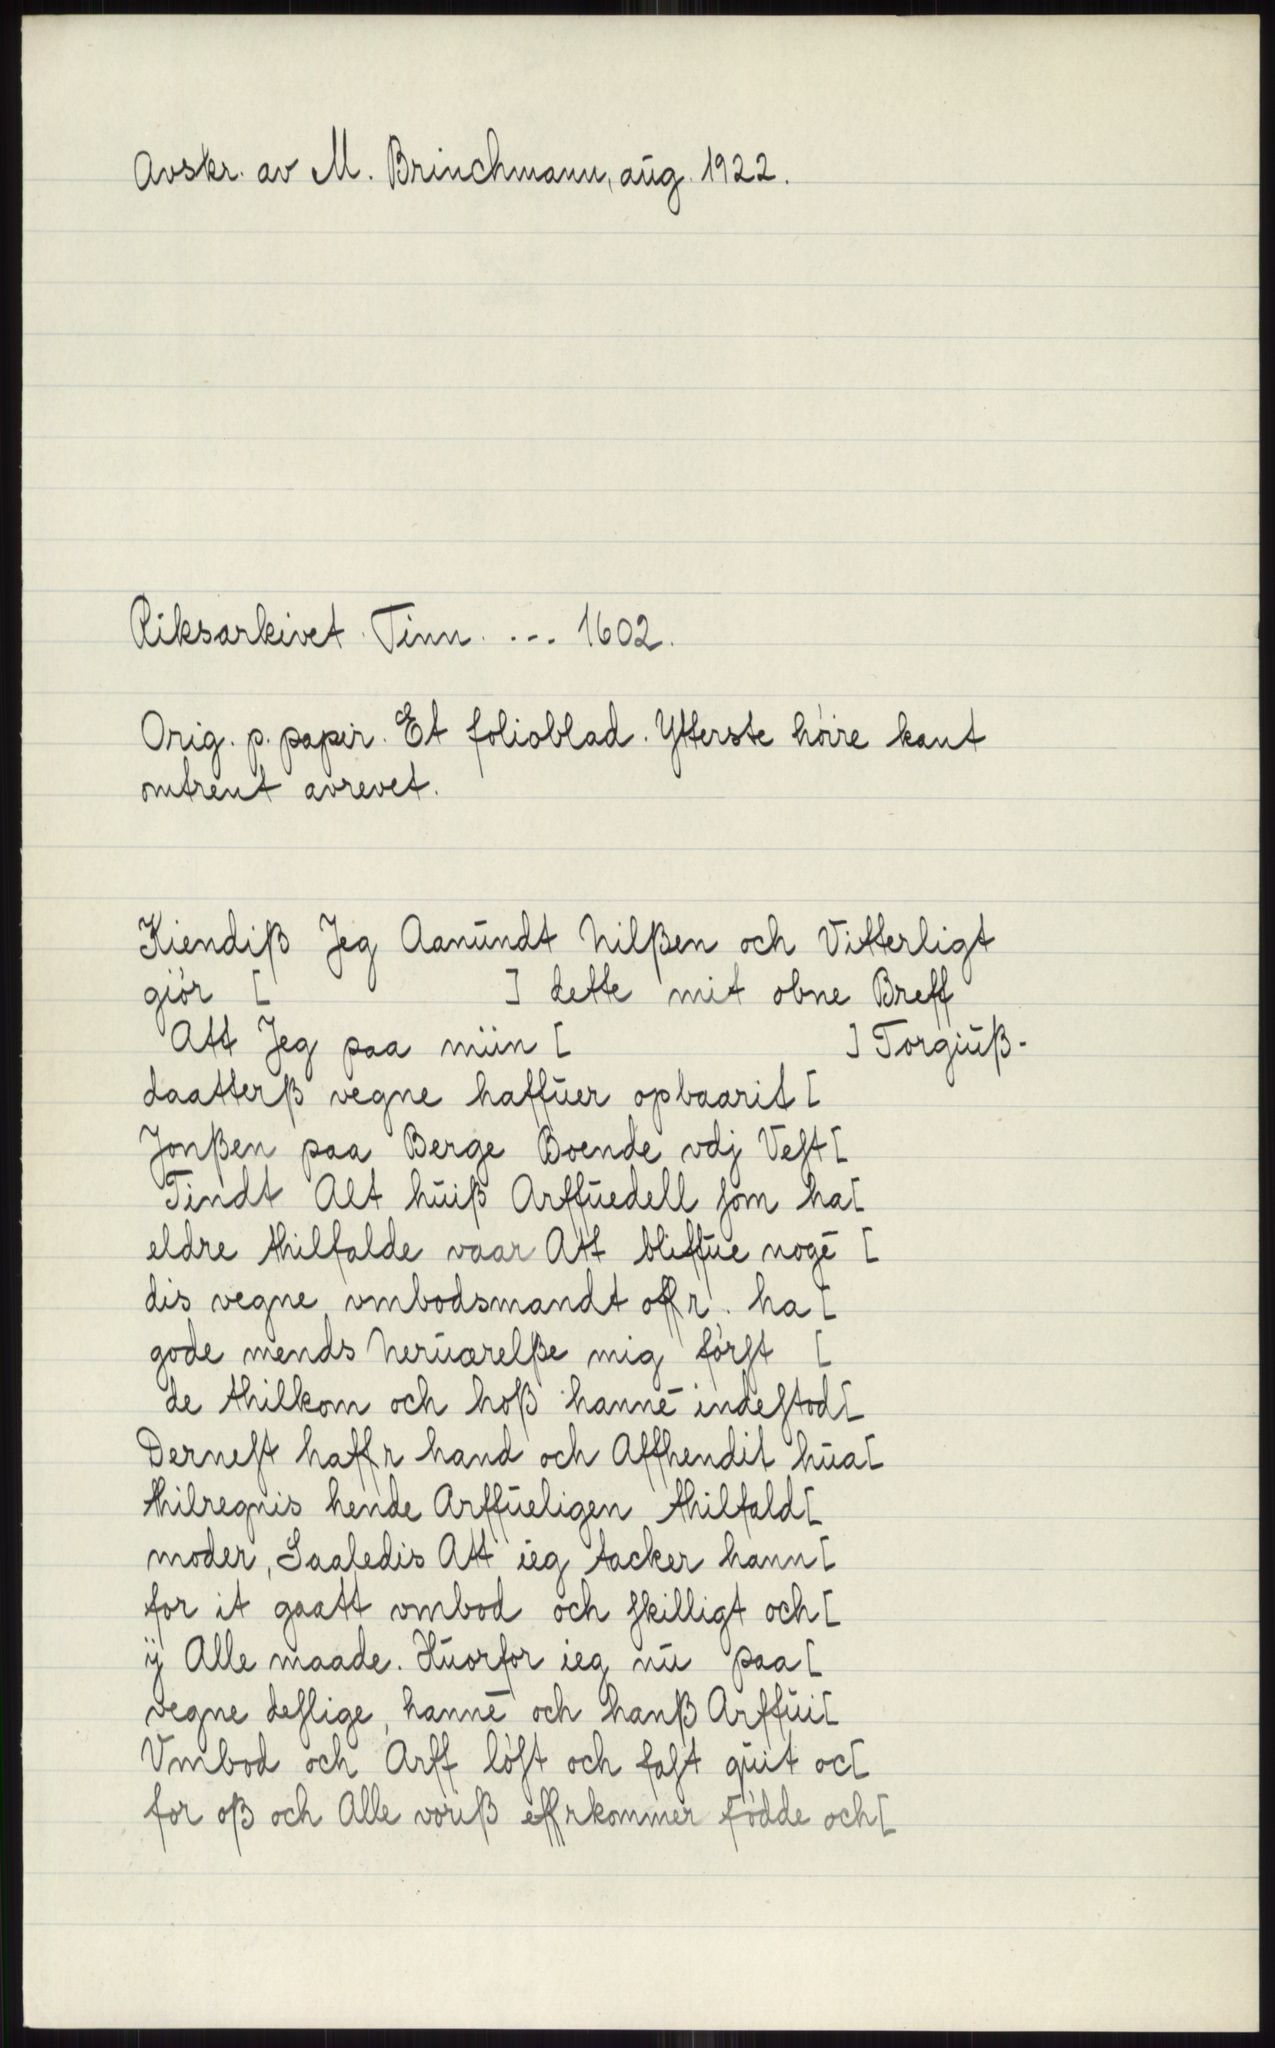 Avskr. av M. Brinchmann, aug. 1922.
Riksarkivet. Tinn. ... 1602.
Orig. p. papir. Et folioblad. Ytterste höire kant
omtrent avrevet.
Kiendiß Jeg Aanundt Nilßen och Vitterligt
giör [ ] dette mit obne Breff
Att Jeg paa miin [ ] Torgiuß-
daatterß vegne haffuer opbaarit [
Jonßen paa Berge Boende vdj Veſt [
Tindt Alt huiß Arffuedell ſom ha [
eldre thilfalde vaar Att bliffue nogē [
dis vegne vmbodsmandt offr. ha [
gode mends Neruærelße mig förſt [
de thilkom och hoß hannē indeſtod [
Derneſt haffr hand och Affhendit hua [
thilregnis hende Arffueligen thilfald [
moder, Saaledis Att ieg tacker hann [
for it gaatt vmbod och ſkilligt och [
ÿ Alle maade. Huorfor ieg nu paa [
vegne deſlige, hannē och hanß Arffui [
Vmbod och Arff löſt och faſt quit oc [
for oß och Alle voriß effrkommer Födde och [